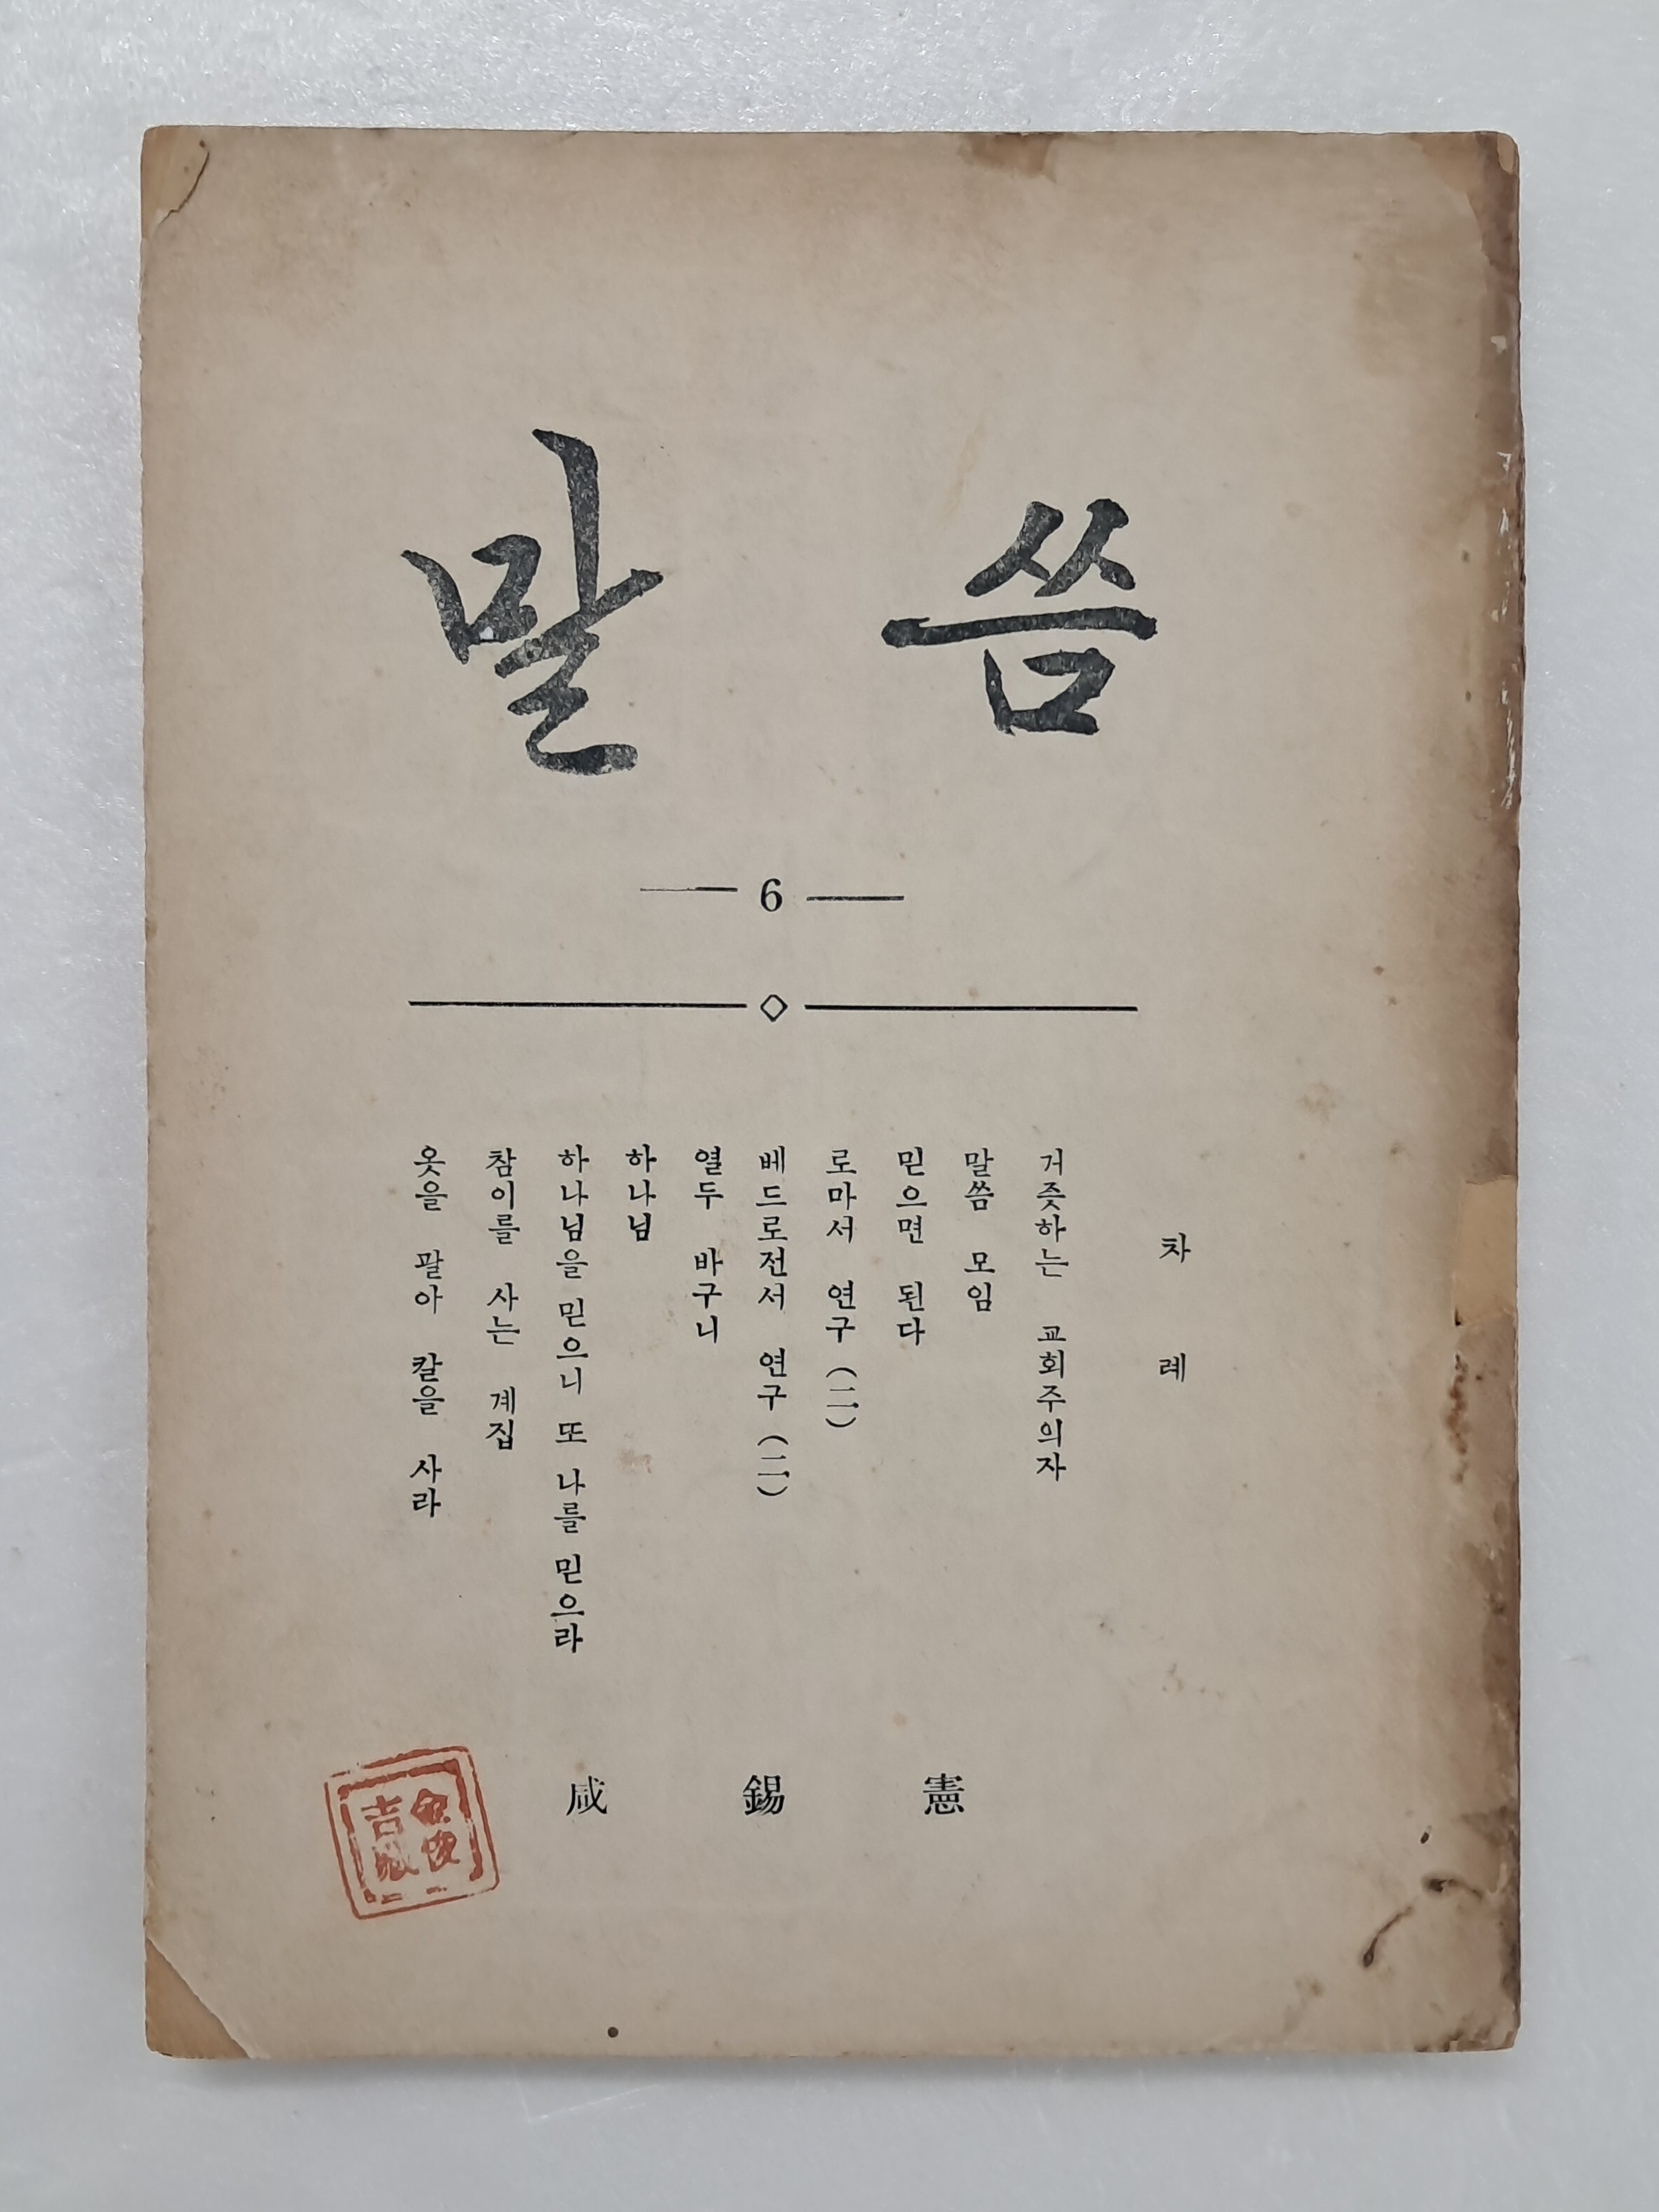 말씀
6
차례
거즛하는 교회주의자
말씀 모임
믿으면 된다
로마서 연구 (二)
베드로전서 연구 (二)
열두 바구니
하나님
하나님을 믿으니 또 나를 믿으라
참이를 사는 계집
옷을 팔아 칼을 사라
咸錫憲